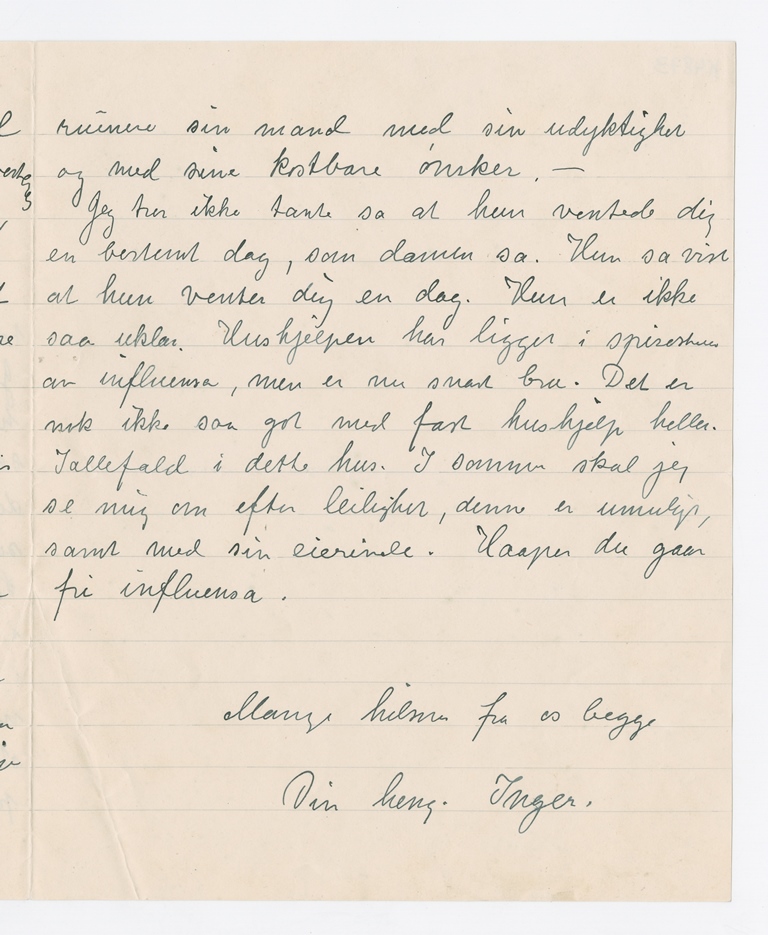 ruinere sin mand med sin udyktighet
og med sine kostbare ønsker. —
Jeg tror ikke tante sa at hun ventede dig
en bestemt dag, som damen sa. Hun sa vist
at hun venter dig en dag. Hun er ikke
saa uklar. Hushjelpen har ligget i
av influensa, men er nu snart bra. Det er
nok ikke saa got med fast hushjelp heller.
Iallefald i dette hus. I sommer skal jeg
se mig om efter leilighet, denne er umulig,
samt med sin eierinde. Haaper du gaar
fri influensa.
Mange hilsner fra os begge
Din heng. Inger.